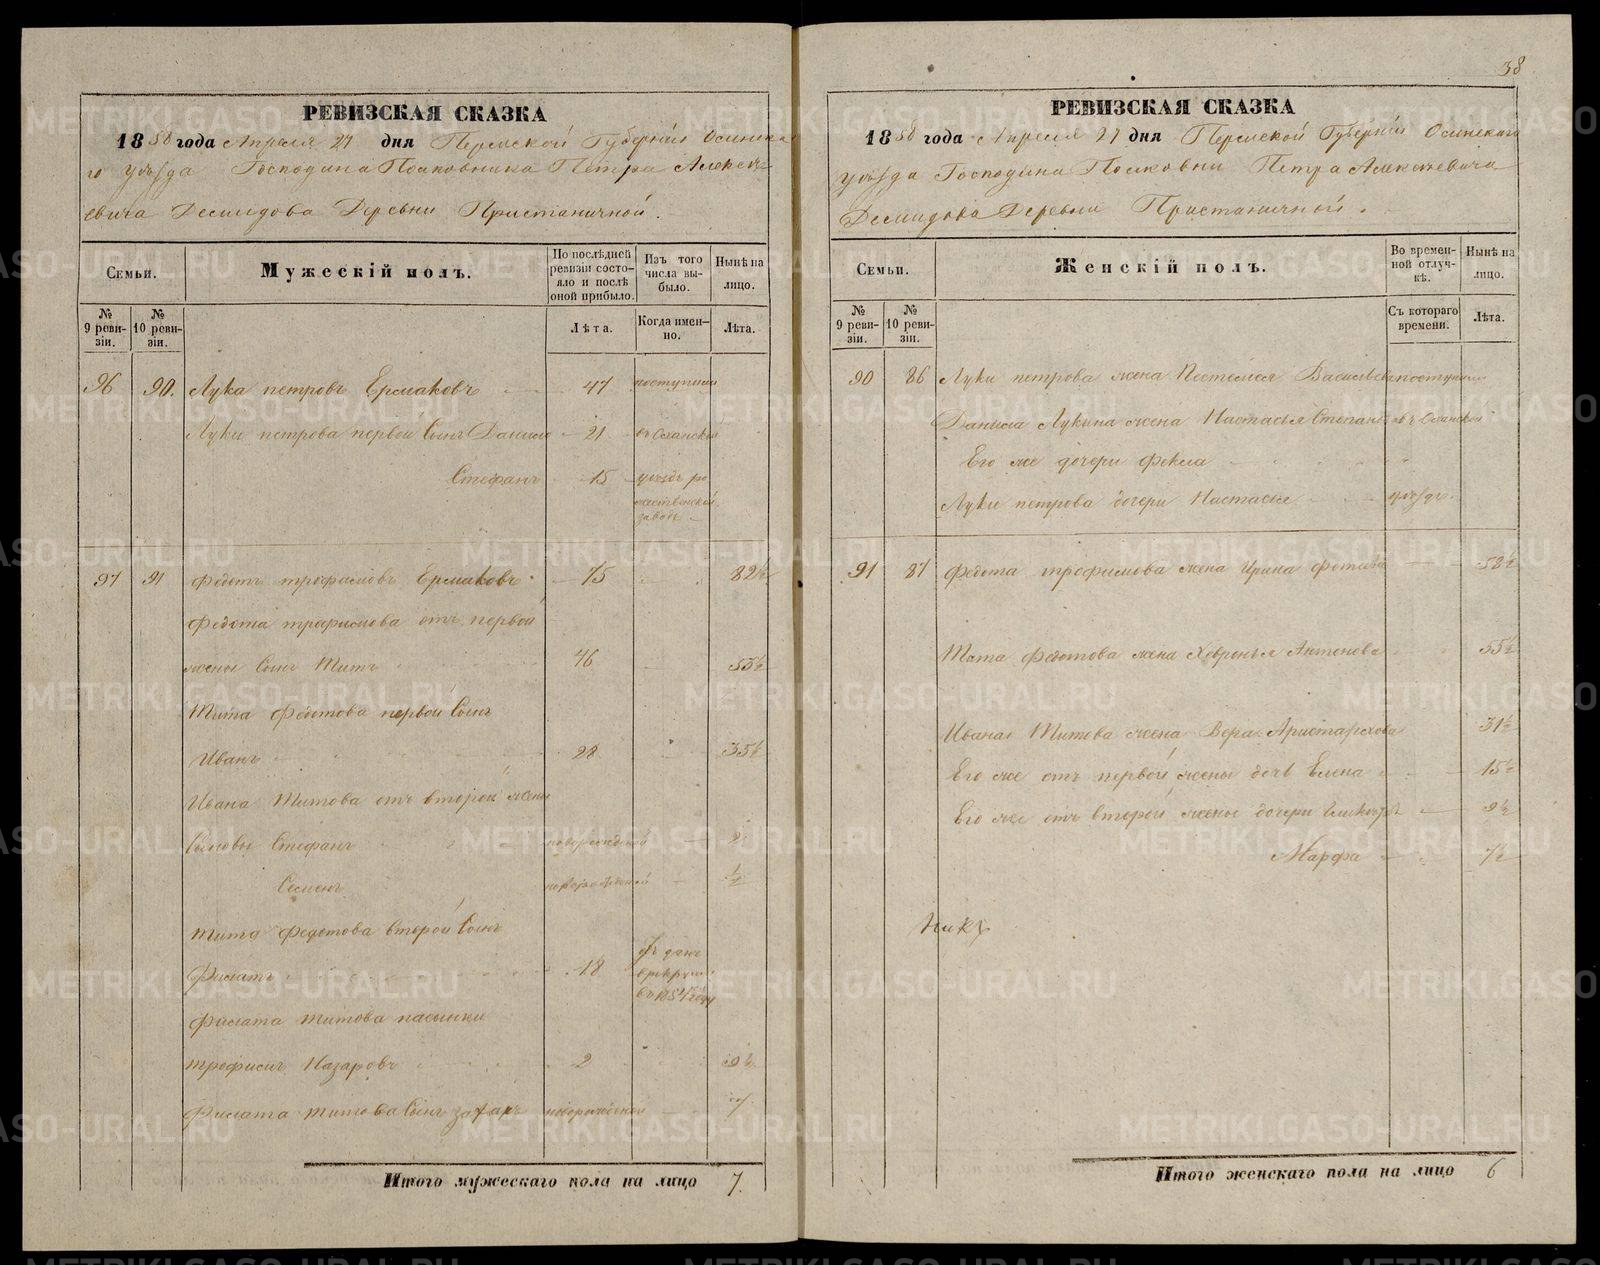 РЕВИЗСКАЯ СКАЗКА
1858 года Апреля 27 дня Пермской Губернии Осинска-
го уезда Господина Полковника Петра Алексе-
евича Демидова Деревни Пристаничной.
Семьи.
Мужескій полъ.
По послѣдней ревизіи состо-яло и послѣ оной прибыло.
Изъ того числа вы-было.
Нынѣ на лицо.
№ 9 реви-зіи.
№ 10 реви-зіи.
Лѣта.
Когда имен-но.
Лѣта.
96 90. Лука петровъ Ермаковъ 47 поступили
Луки петрова первой сынъ Данило 21 въ Оханской
Стефанъ 15 уездъ ро
жественской
заводъ
97 91 Федотъ трофимовъ Ермаковъ 75 82½
Федота трофимова отъ первой
жены сынъ Титъ 46 53½
Тита Федотова первой сынъ
Иванъ 28 35½
Ивана Титова отъ второй жены
сыновья Стефанъ новорожденой 2
Семенъ новорожденой ½
Тита Федотова второй сынъ
Филатъ 18
в рекруты
Филата титова пасынки
трофимъ Назаровъ 2 9½
Филата титова сынъ захаръ новорожденой 7
Итого мужескаго пола на лицо 7.
38
РЕВИЗСКАЯ СКАЗКА
1858 года Апреля 27 дня Пермской Губернии Осинскаго
уезда Господина Полковни Петра Алексеевича
Демидова Деревни Пристаничной.
Семьи.
Женскій полъ.
Во времен-ной отлуч-кѣ.
Нынѣ на лицо.
№ 9 реви-зіи.
№ 10 реви-зіи.
Съ котораго времени.
Лѣта.
90 86 Луки петрова жена Васильева поступили
Данила Лукина жена Настасья Степан въ Оханской
Его же дочери Фекла
Луки петрова дочери Настасья уездъ.
91 87 Федота трофимова жена Ирина 58½
Тита Федотова жена Хевронья Антонова 55½
Ивана Титова жена Вера Аристархова 31½
Его же отъ первой жены дочь Елена 15½
Его же отъ второй жены дочери 9½
Марфа 7½
Итого женскаго пола на лицо 6
METRIKI.GASO-URAL.RU